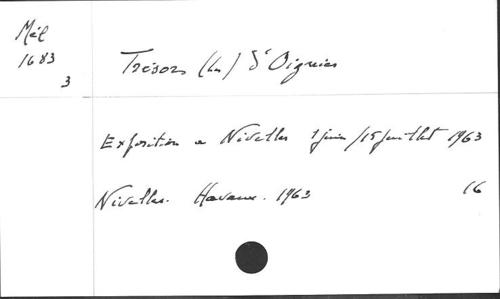 Mél
1683
3
Trésors (Les) d'Oignies
Exposition a Nivelles 1 juin/15 juillet 1963
Nivelles. Havaux. 1963 16